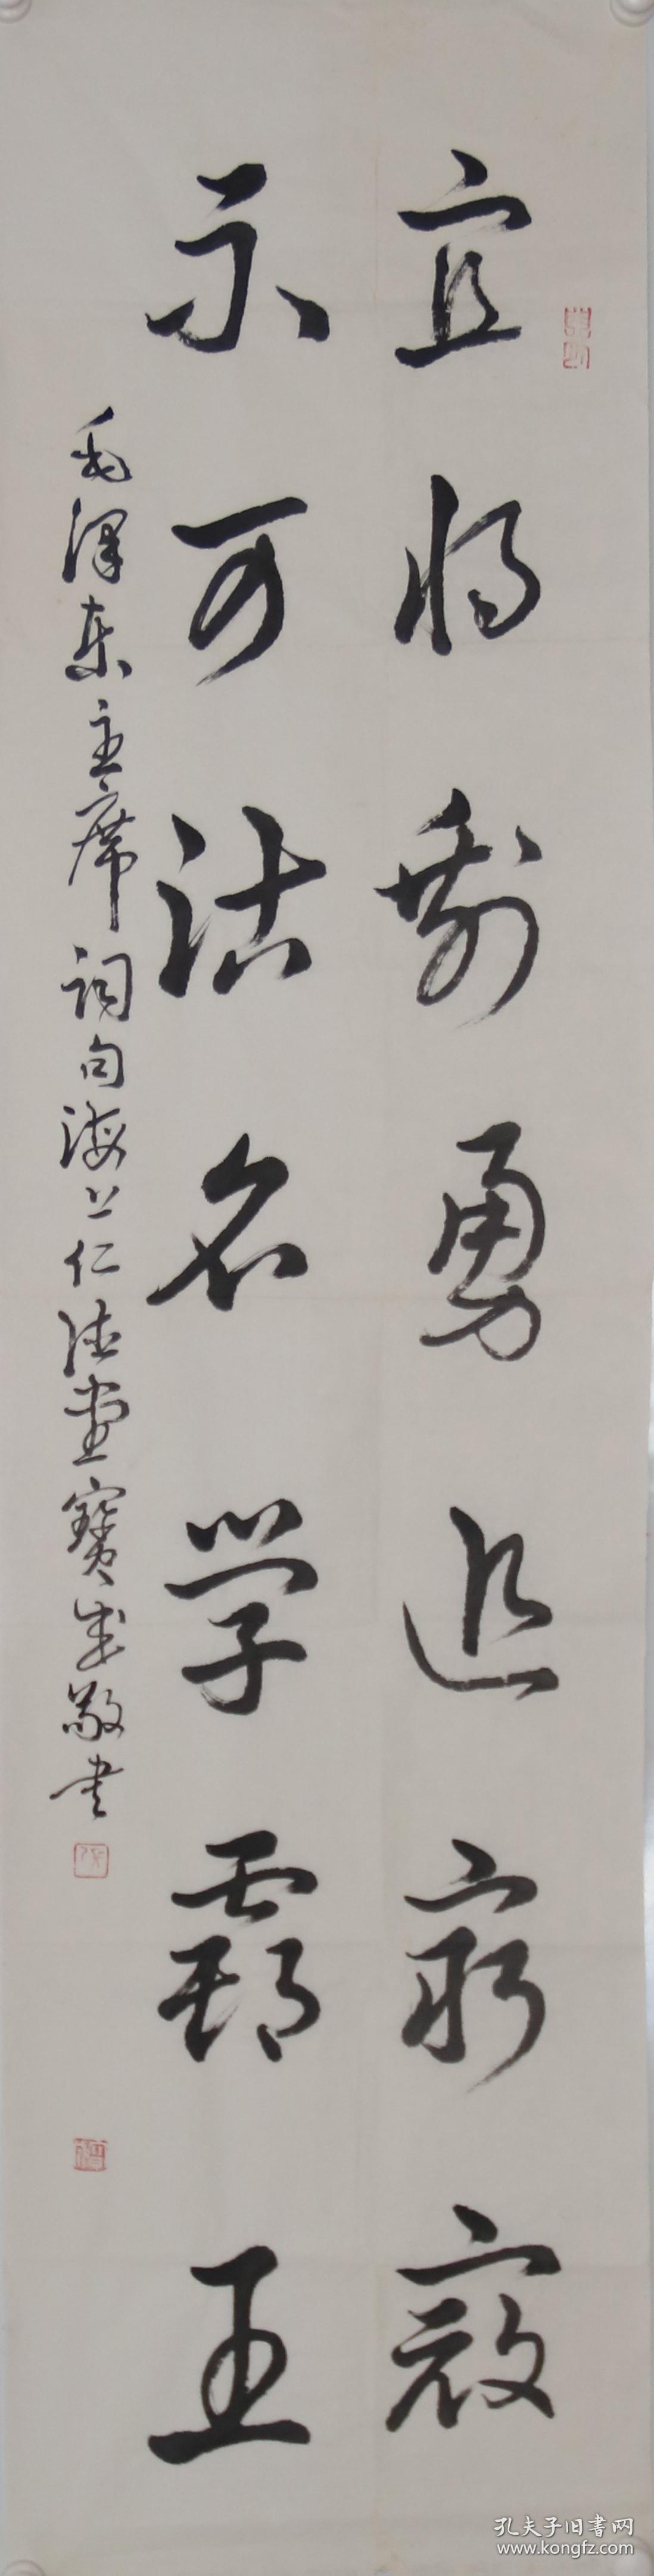 宜将剩勇追穷寇
不可沽名学霸王
毛泽东主席词句海上仁德堂宝成敬书
孔夫子旧书网
www.kongfz.com